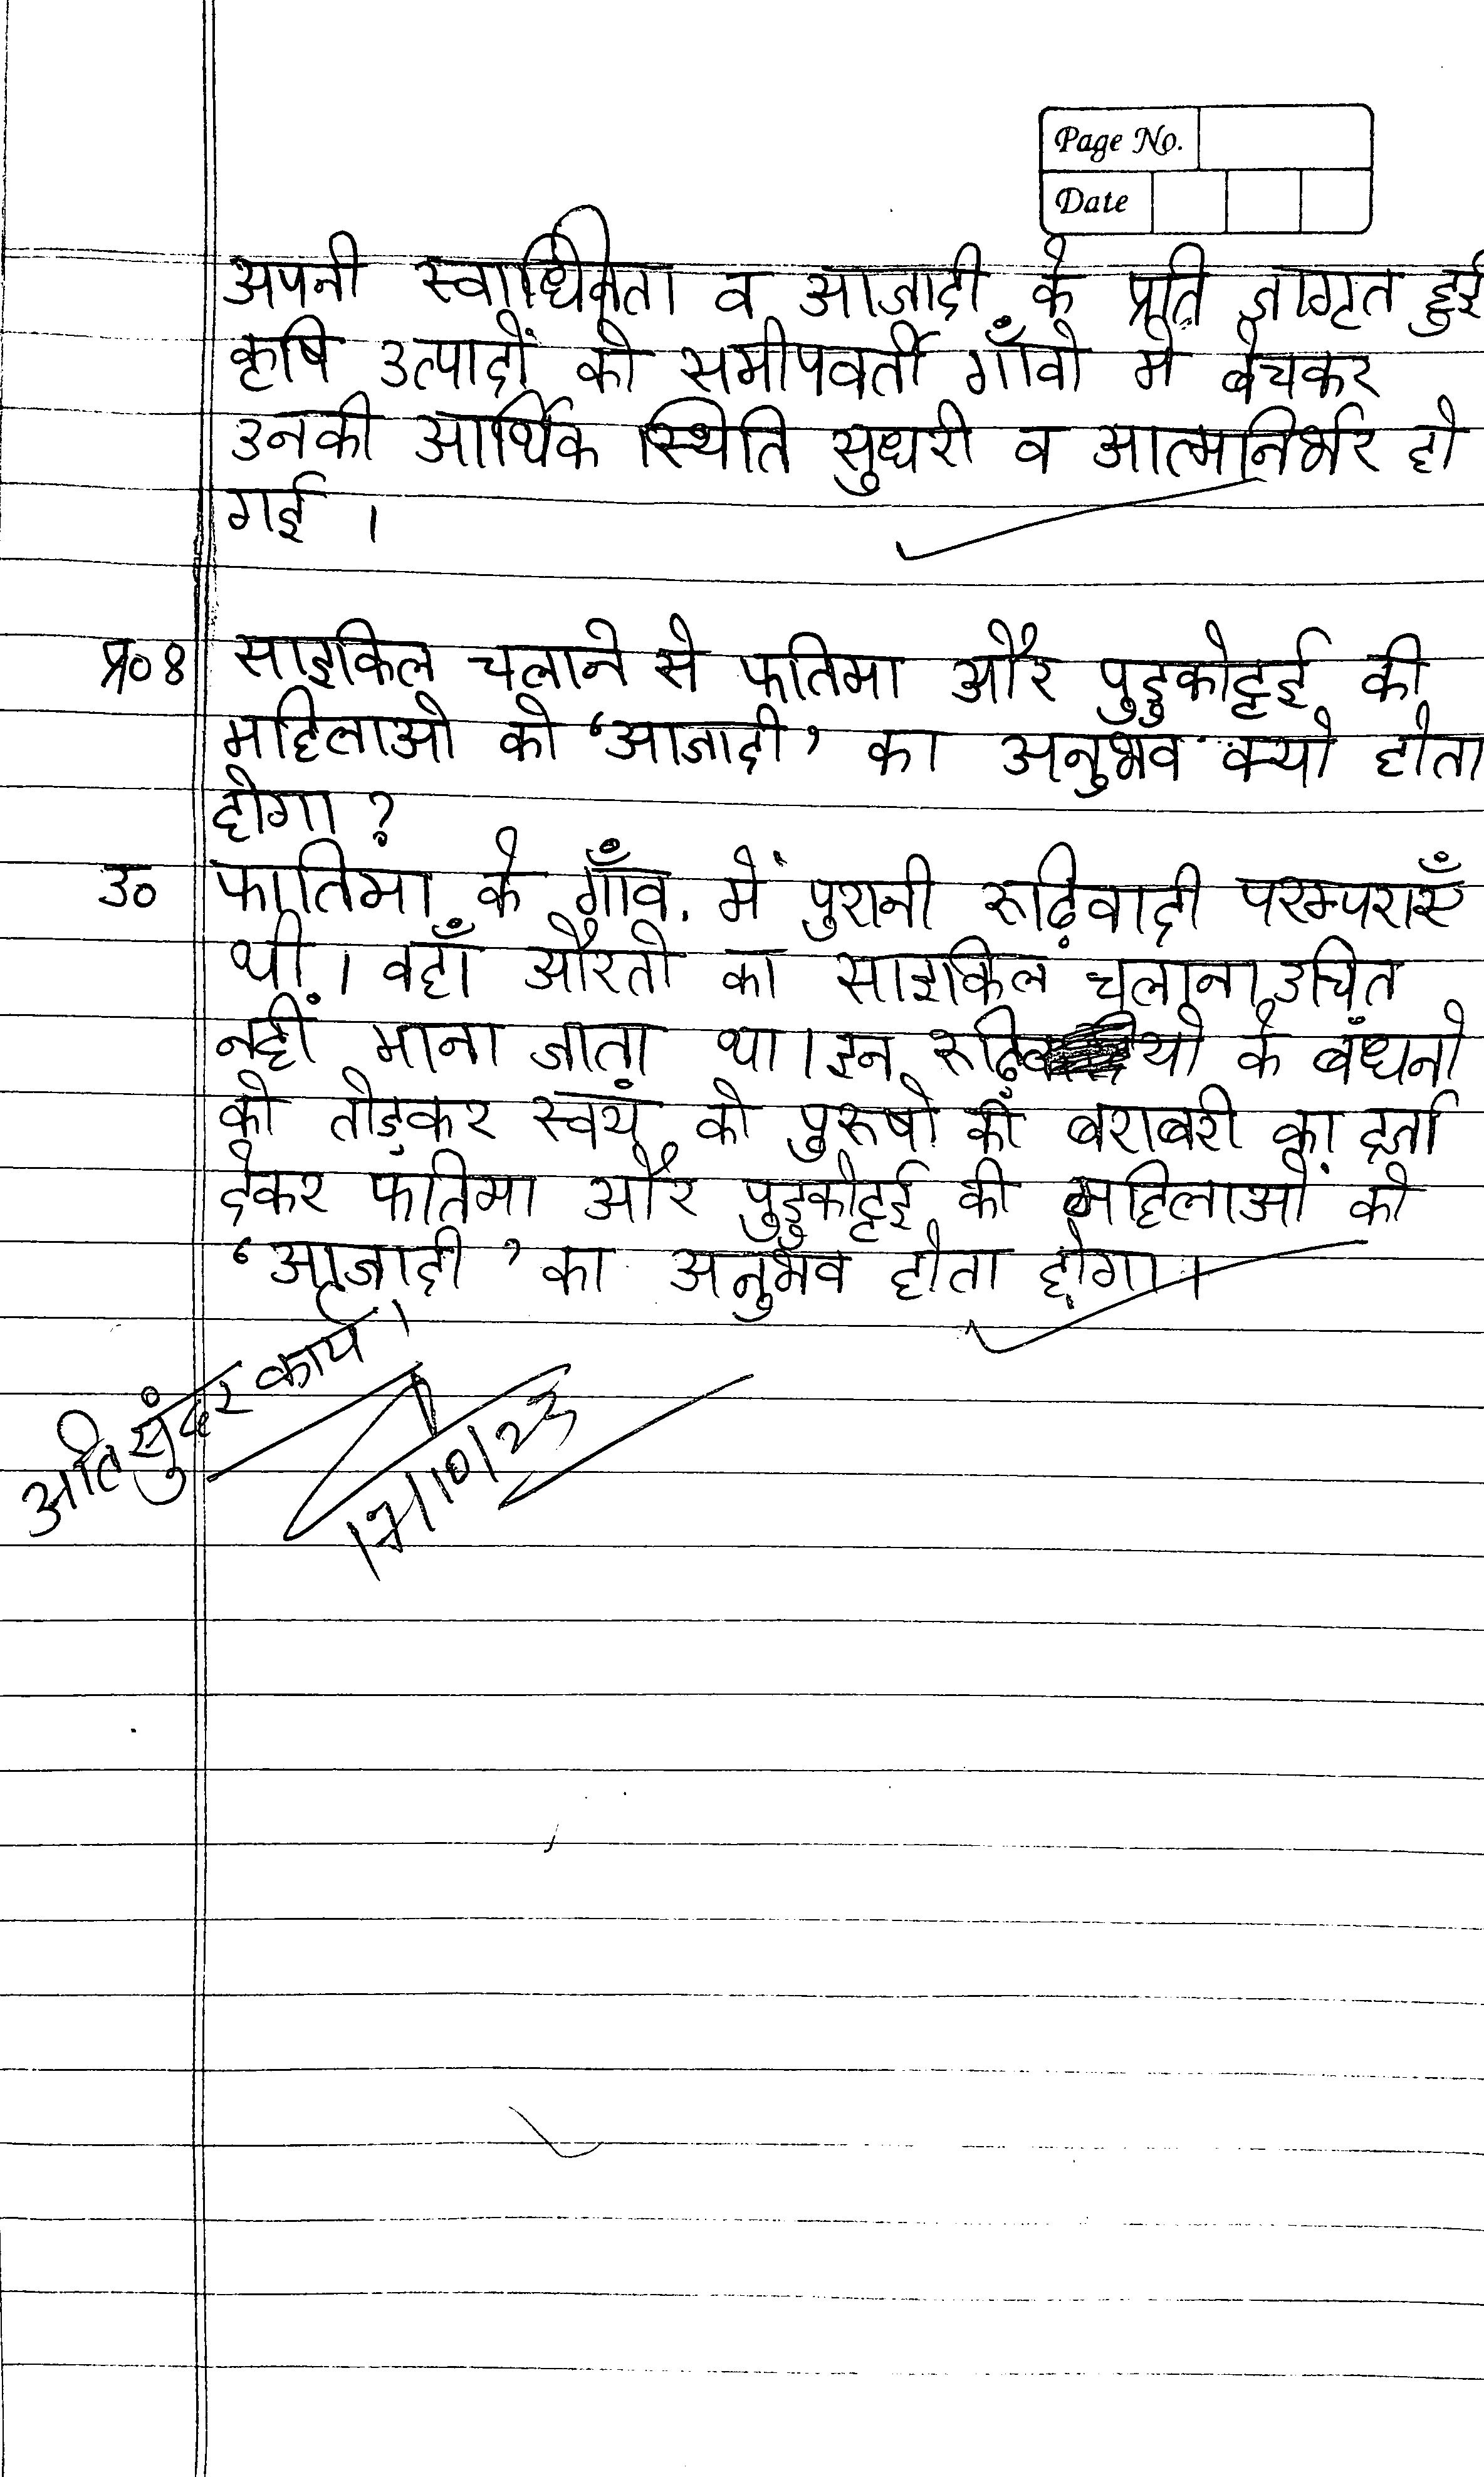 Page No.
Date
अपनी स्वाधिनता व आजादी के प्रति जागृत हुई
कृषि उत्पादों को समीपवर्ती गाँवो मे बेचकर
उनकी आर्थिक स्थिति सुधरी व आत्मनिर्भर हो
गई ।
प्र० 8 साइकिल चलाने से फतिमा और पुडुकोट्टई की
महिलाओ को ‘आजादी’ का अनुभव क्यो होता
होगा ?
उ० फातिमा के गाँव में पुरानी रूढ़िवादी परम्पराएँ
थी। वहाँ औरतो का साइकिल चलाना उचित
नहीं माना जाता था। इन रूढ़ियो के बंधनो
को तोड़कर स्वयं को पुरूषो की बराबरी का दर्जा
देकर फतिमा और पुडुकोट्टई की महिलाओं को
‘आजादी’ का अनुभव होता होगा।
अति सुंदर कार्य।
17/10/23